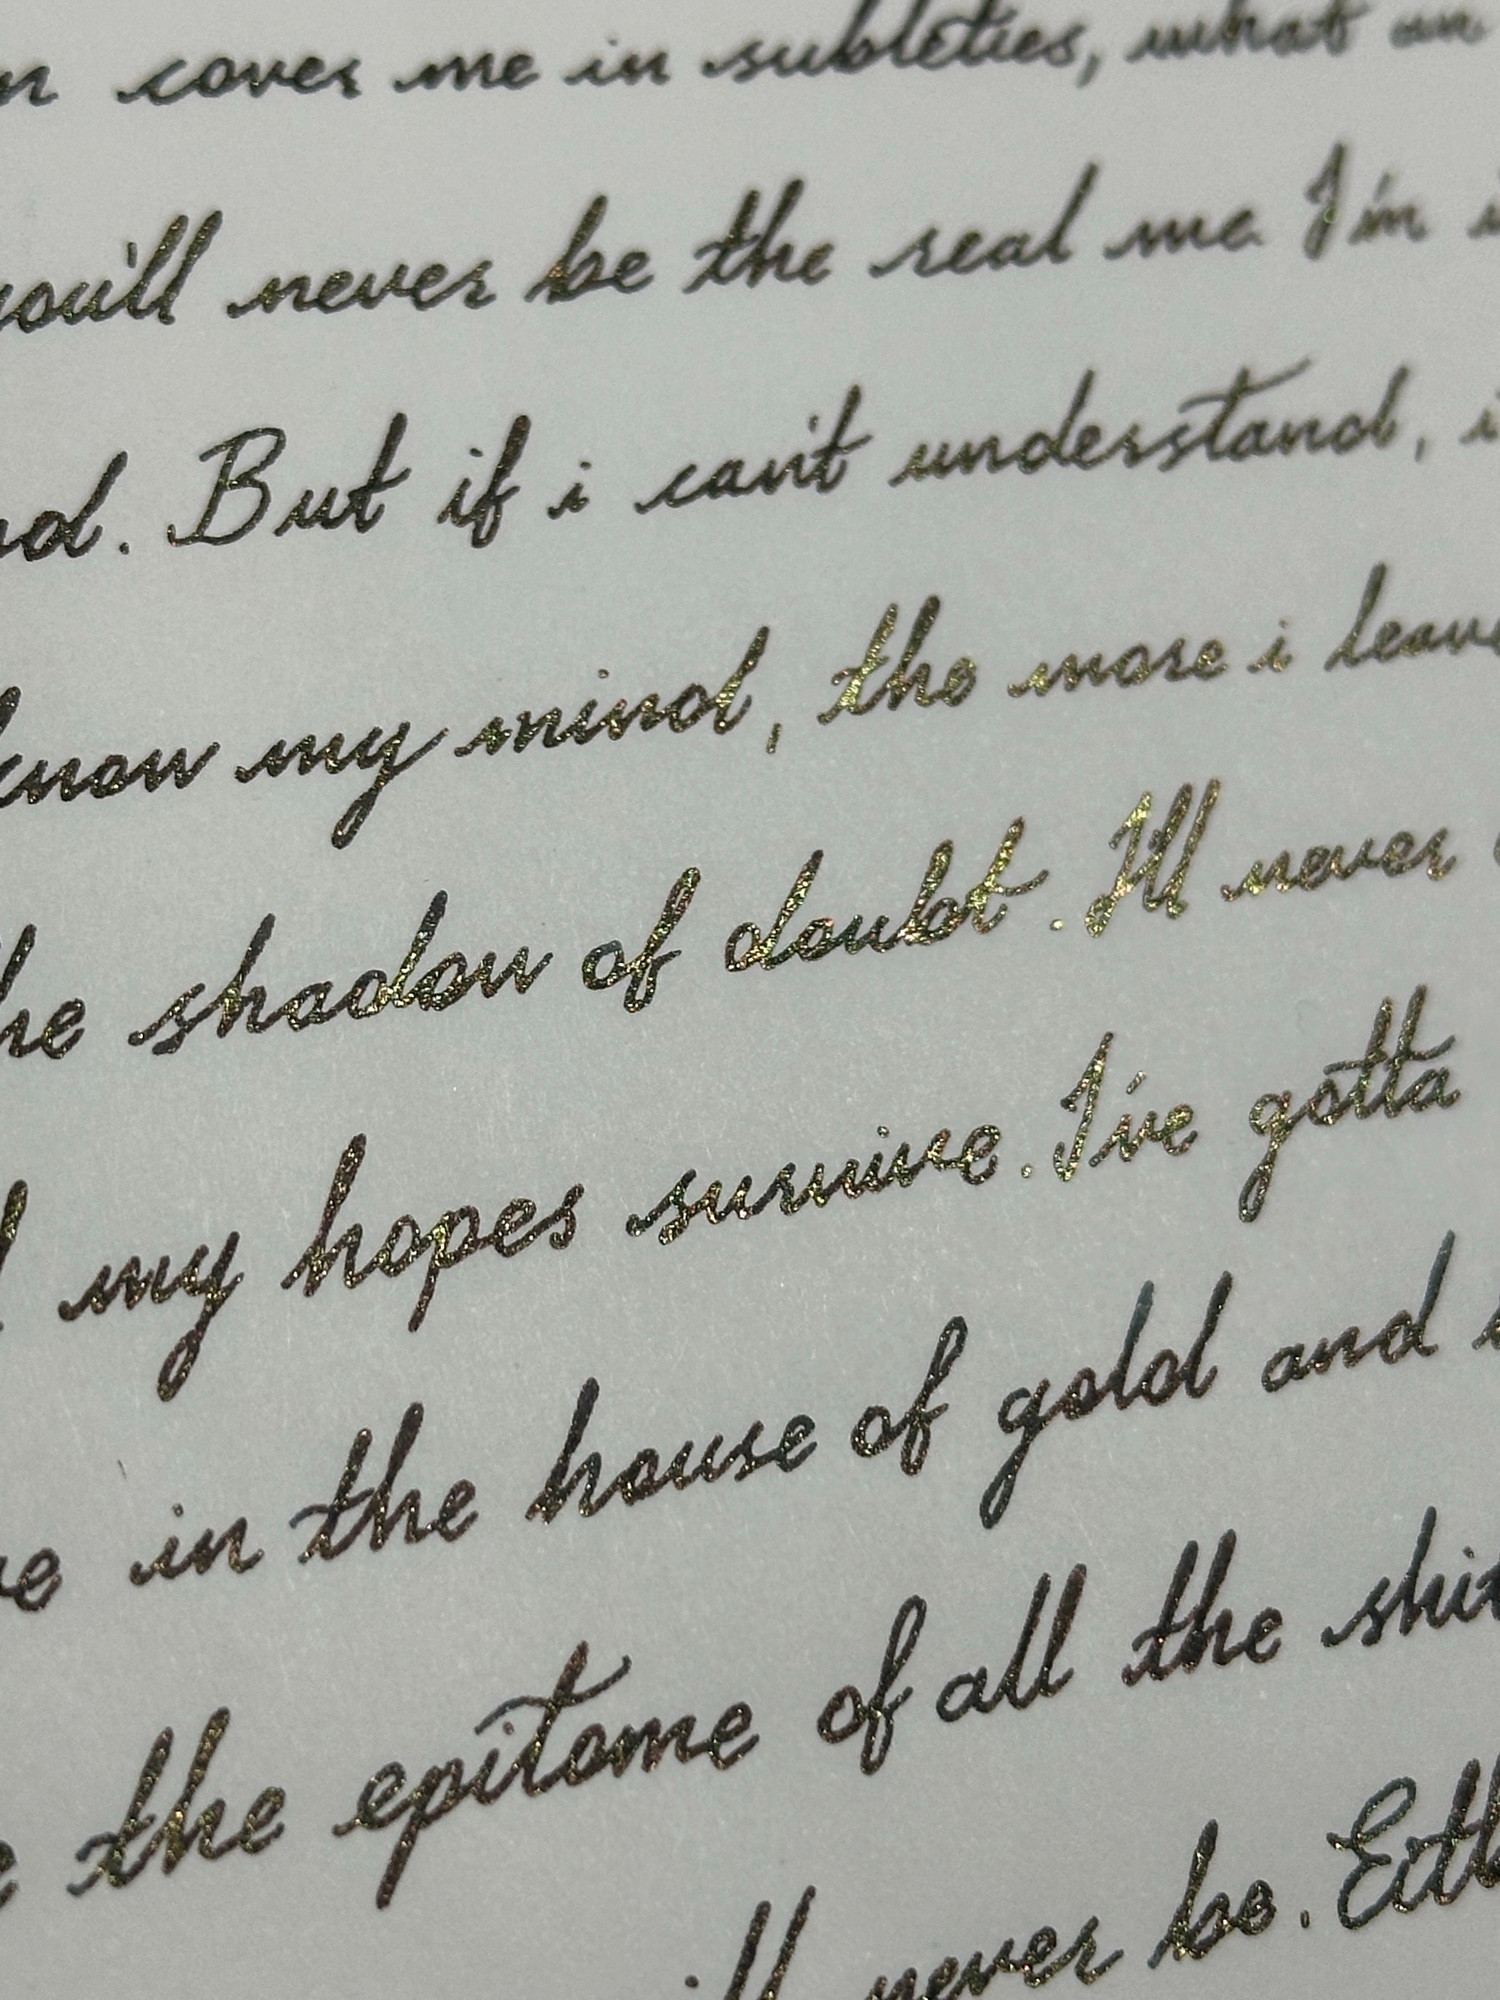 cover me in subleties, what an
you'll never be the real me I'm
But if i can't understand,
know my mind, the more i leave
the shadow of doubt. I'll never
my hopes survive. I've gotta
in the house of gold and
the epitome of all the shit
never be. Eith